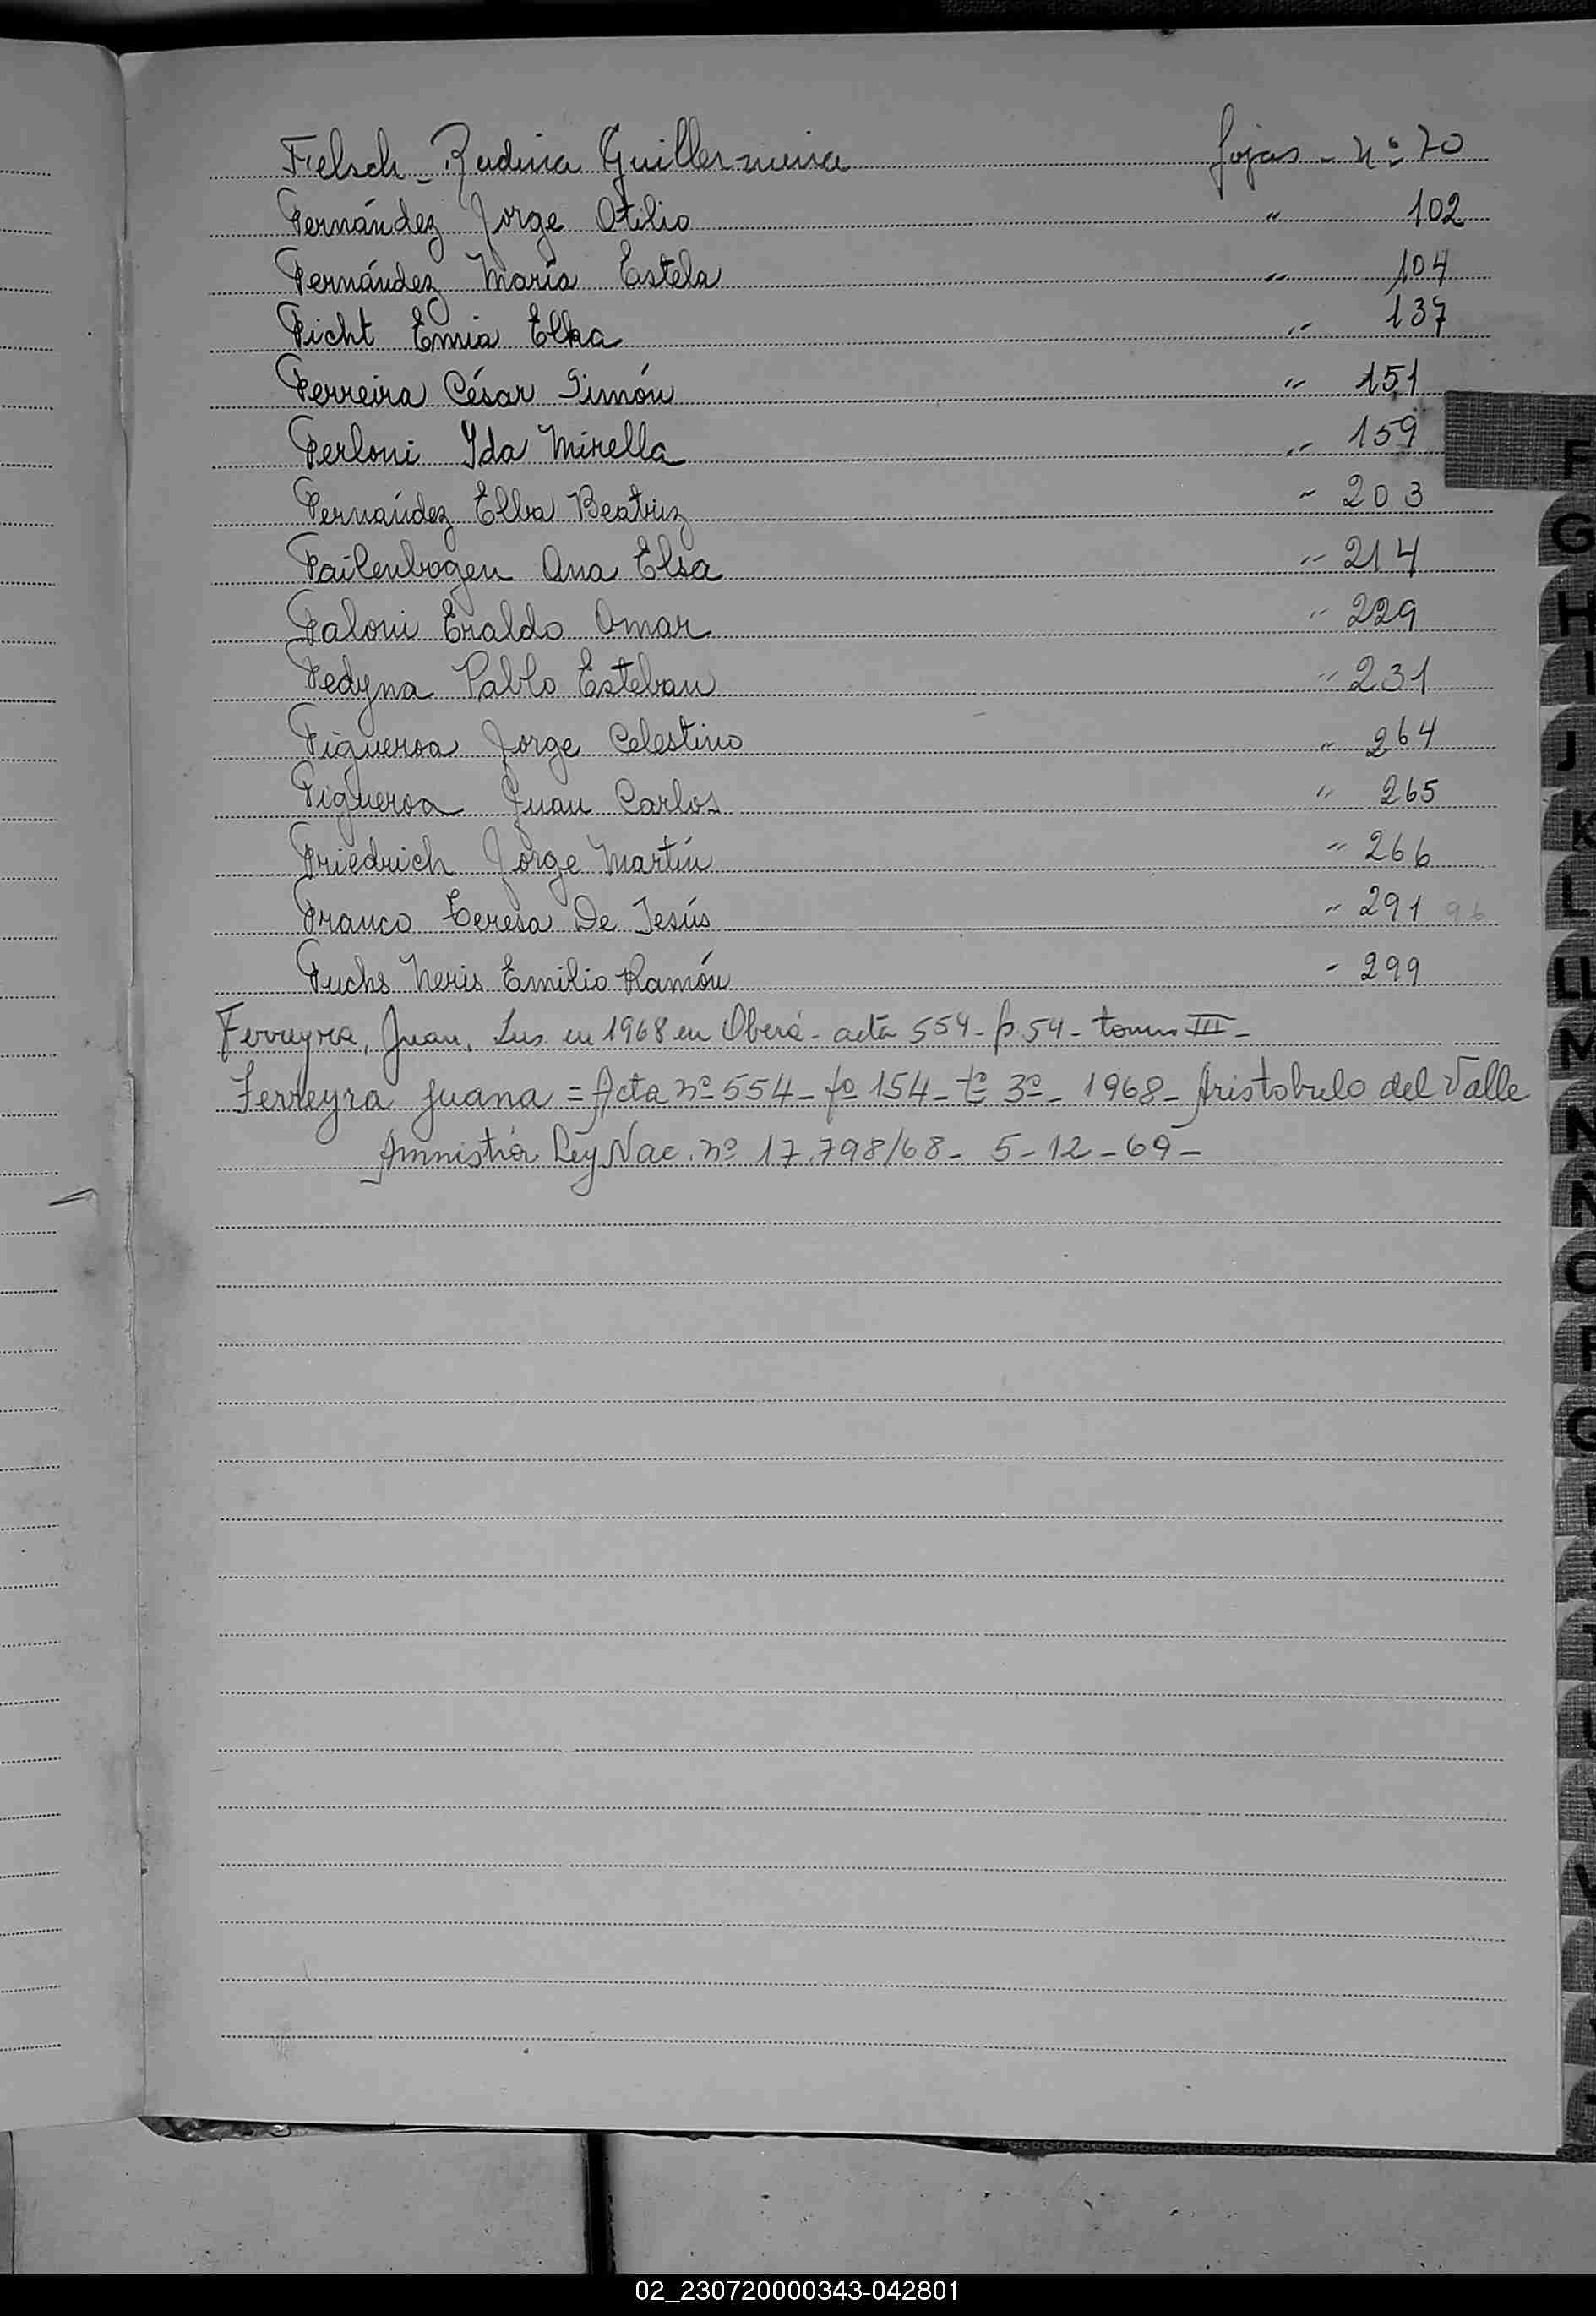 Felsch - Rudina Guillermina fojas - nº 20
Fernández Jorge Otilio " 102
Fernández María Estela " 104
Ficht Emia Elka " 137
Ferreira César Simón " 151
Ferloni Yda Mirella " 159
Fernández Elba Beatriz " 203
Failenbogen Ana Elsa " 214
Faloni Eraldo Omar " 229
Fedyna Pablo Esteban " 231
Figueroa Jorge Celestino " 264
Figueroa Juan Carlos " 265
Friedrich Jorge Martín " 266
Franco Teresa De Jesús " 291 96
Fuchs Neris Emilio Ramón " 299
Ferreyra, Juan. Ins. en 1968 en Oberá - acta 554 - f. 54 - tomo III -
Ferreyra Juana = Acta nº 554 - fº 154 - tº 3º - 1968 - Aristobulo del Valle
Amnistía Ley Nac. nº 17.798/68 - 5 - 12 - 69 -
F
G
H
I
J
K
L
LL
M
N
Ñ
O
P
Q
02_230720000343-042801